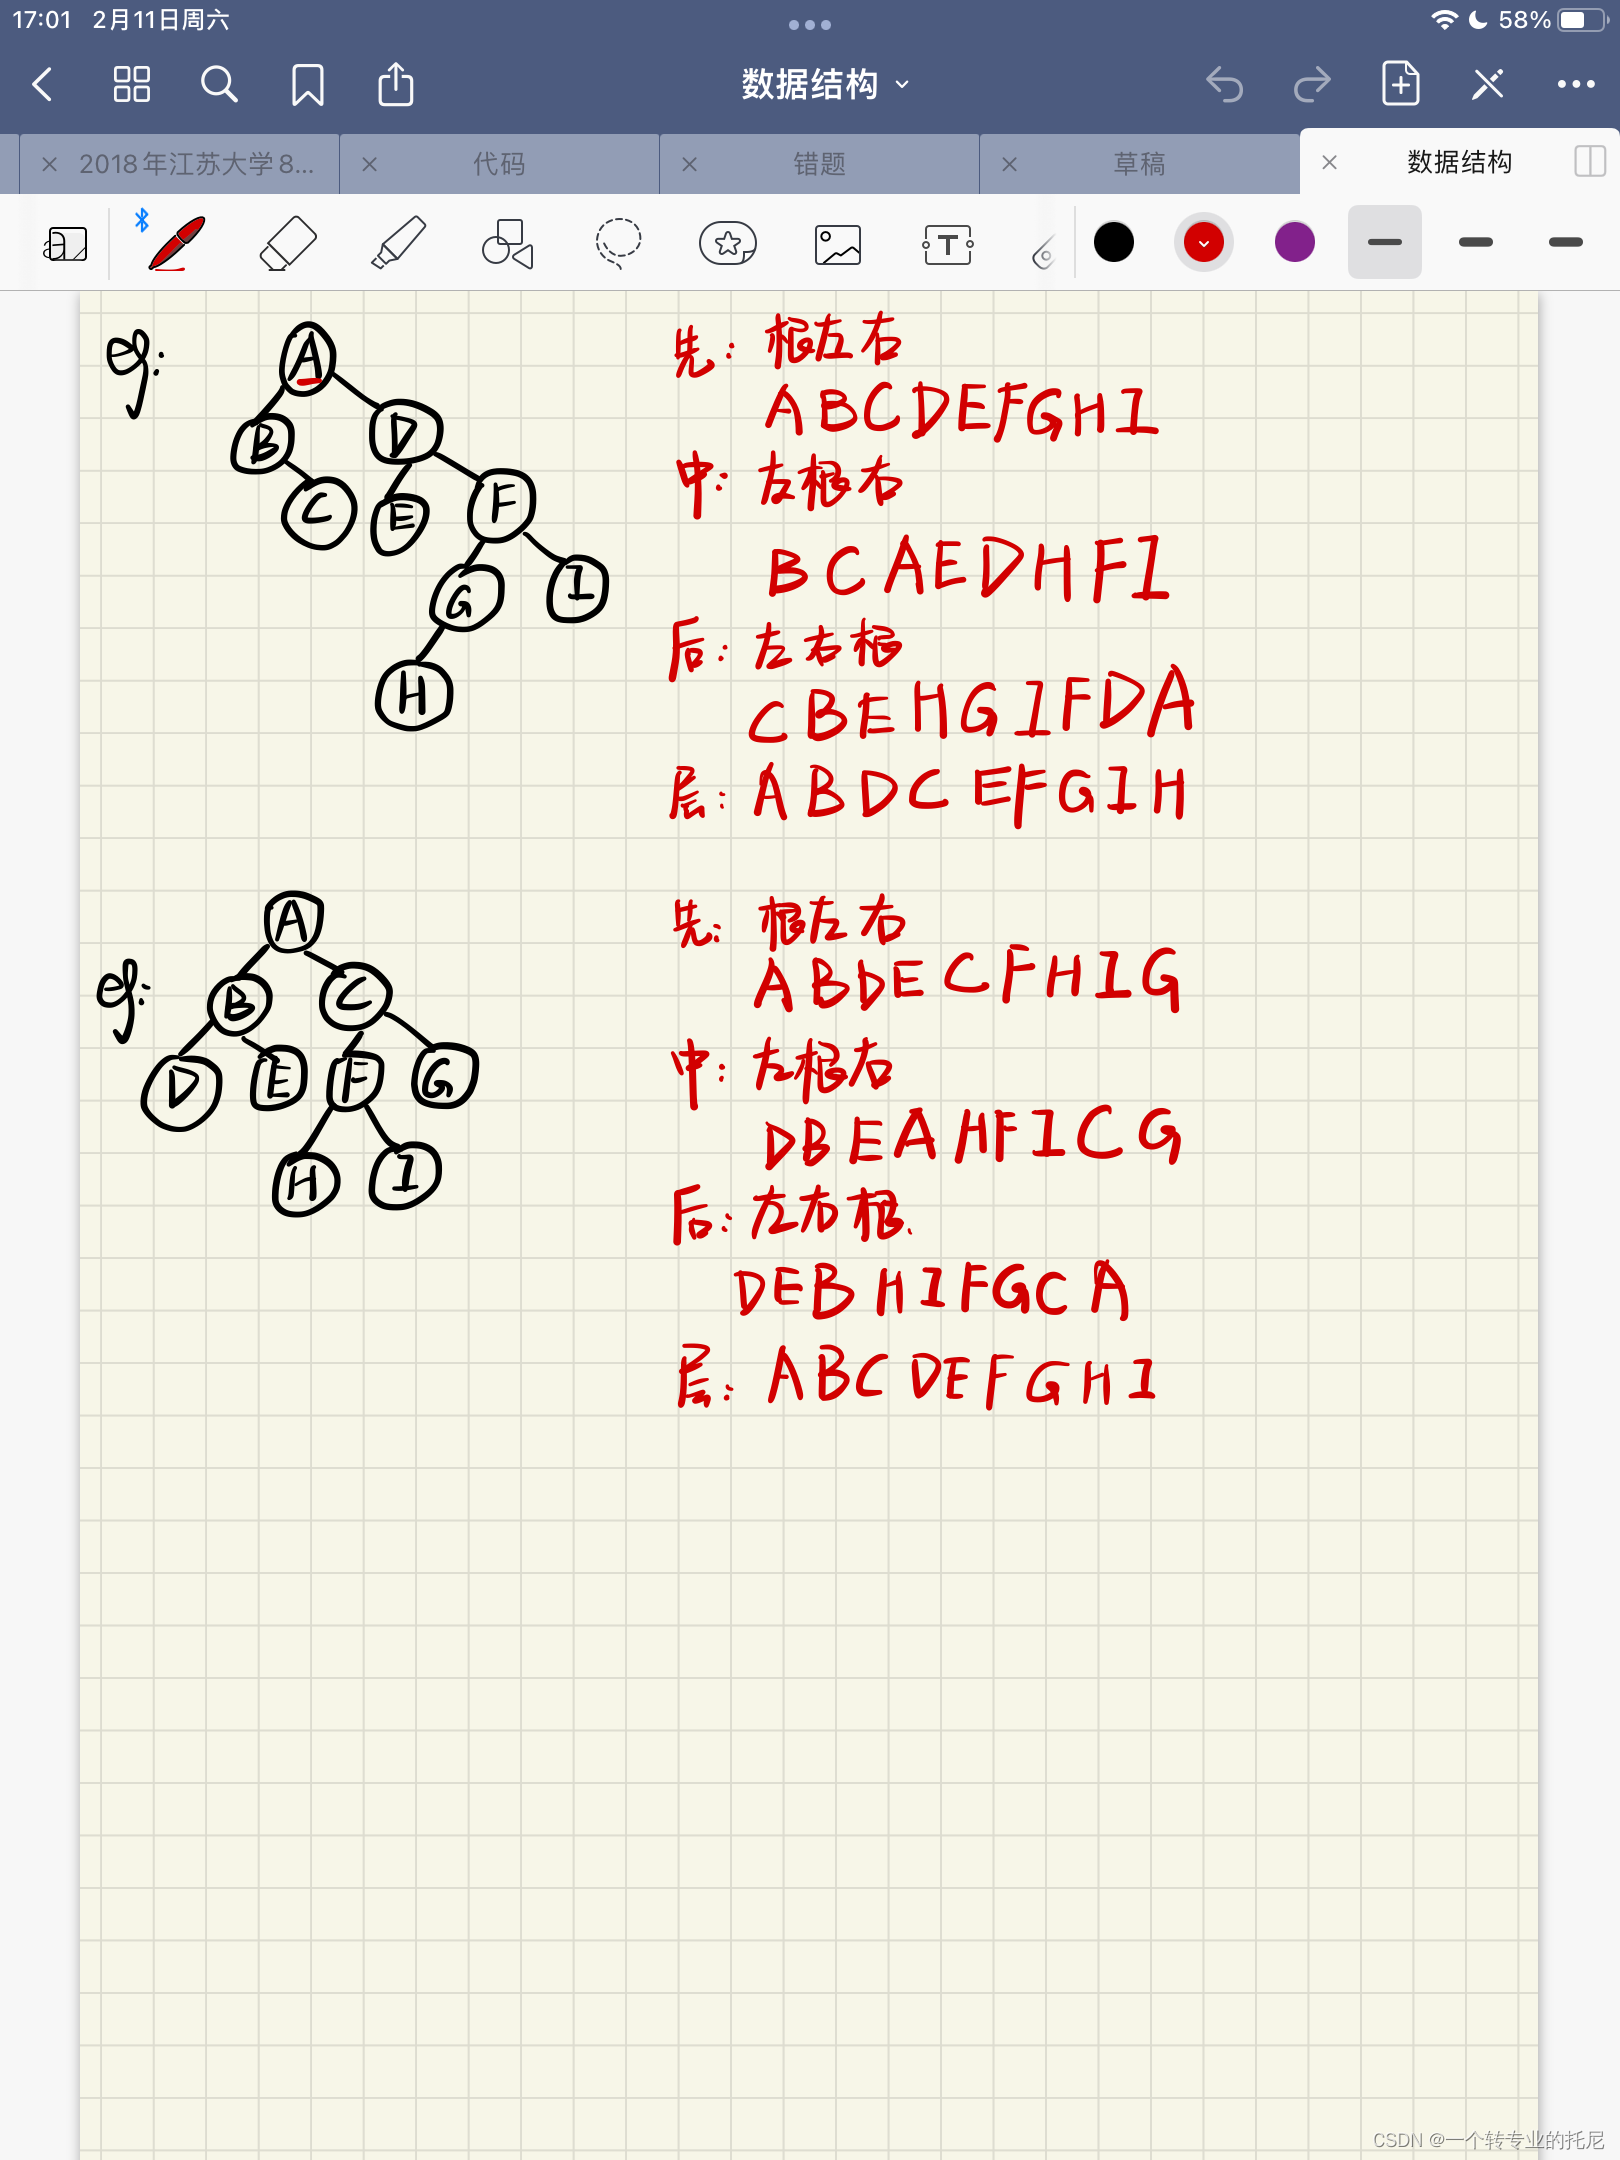 17:01 2月11日周六
58%
数据结构
2018年江苏大学8...
代码
错题
草稿
数据结构
eg:
A
B
D
C
E
F
G
I
H
先: 根左右
ABCDEFGHI
中: 左根右
BCAEDHFI
后: 左右根
CBEHGIFDA
层: ABDCEFGIH
eg:
A
B
C
D
E
F
G
H
I
先: 根左右
ABDECFHIG
中: 左根右
DBEAHFICG
后: 左右根.
DEBHIFGCA
层: ABCDEFGHI
CSDN @一个转专业的托尼